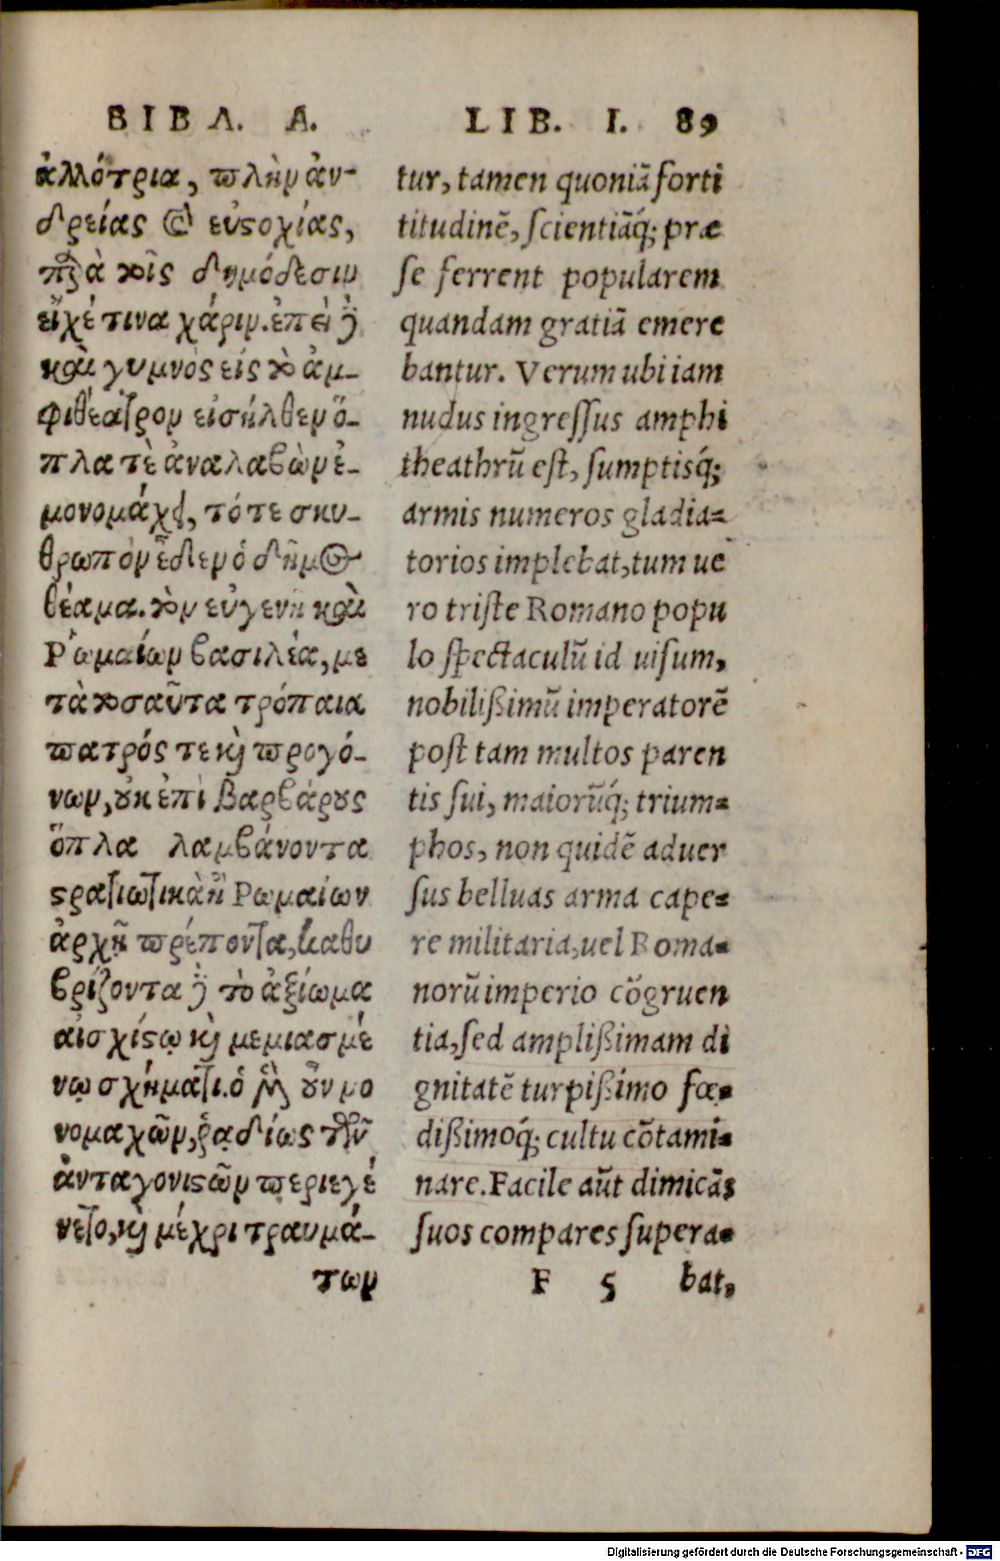 ΒΙΒΛ. Α.
ἀλλότρια, πλὴν ἀν-
δρείας καὶ εὐστοχίας,
παρὰ τοῖς δημόδεσιν
εἶχέ τινα χάριν. ἐπεὶ δὲ
καὶ γυμνὸς εἰς τὸ ἀμ-
φιθέατρον εἰσῆλθεν ὅ-
πλα τὲ ἀναλαβὼν ἐ-
μονομάχει, τότε σκυ-
θρωπὸν εἶδεν ὁ δῆμος
θέαμα. τὸν εὐγενῆ καὶ
Ῥωμαίων βασιλέα, με
τὰ τοσαῦτα τρόπαια
πατρός τε καὶ προγό-
νων, οὐκ ἐπὶ βαρβάρους
ὅπλα λαμβάνοντα
στρατιωτικὰ ἢ Ῥωμαίων
ἀρχῇ πρέποντα, καθυ
βρίζοντα δὲ τὸ ἀξίωμα
αἰσχίστῳ καὶ μεμιασμέ
νῳ σχήματι. ὁ μὲν οὖν μο
νομαχῶν, ῥᾳδίως τῶν
ἀνταγωνιστῶν περιεγέ
νετο, καὶ μέχρι τραυμά-
των
LIB. I. 89
tur, tamen quoniā forti
titudinē, scientiāq́; præ
se ferrent popularem
quandam gratiā emere
bantur. Verum ubi iam
nudus ingressus amphi
theathrū est, sumptisq́;
armis numeros gladia-
torios implebat, tum ue
ro triste Romano popu
lo spectaculū id uisum,
nobilißimū imperatorē
post tam multos paren
tis sui, maiorūq́; trium-
phos, non quidē aduer
sus belluas arma cape-
re militaria, uel Roma-
norū imperio cōgruen
tia, sed amplißimam di
gnitatē turpißimo fœ-
dißimoq́; cultu cōtami-
nare. Facile aūt dimicās
suos compares supera-
F 5 bat,
Digitalisierung gefördert durch die Deutsche Forschungsgemeinschaft - DFG